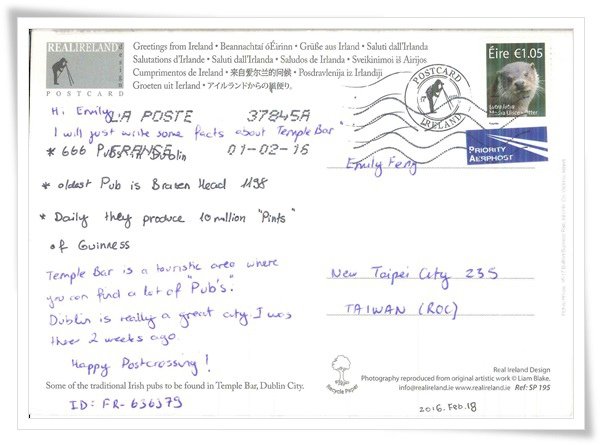 REALIRELAND
design
POSTCARD
Greetings from Ireland • Beannachtaí óÉirinn • Grüße aus Irland • Saluti dall'Irlanda
Salutations d'Irlande • Saluti dall'Irlanda • Saludos de Irlanda • Sveikinimoi iš Airijos
Cumprimentos de Irland • 来自爱尔兰的问候 • Posdravlenija iz Irlandiji
Groeten uit Ierland • アイルランドからの挨拶便り。
Éire €1.05
POSTCARD
IRELAND
PRIORITY
AERPHOST
LA POSTE 37845A
FRANCE 01-02-16
Hi Emily,
I will just write some facts about "Temple Bar"
* 666 Pubs in Dublin
* oldest Pub is Brazen Head 1198
* Daily they produce 10 million "Pints"
of Guinness
Temple Bar is a touristic area where
you can find a lot of "Pub's".
Dublin is really a great city I was
there 2 weeks ago.
Happy Postcrossing!
Some of the traditional Irish pubs to be found in Temple Bar, Dublin City.
ID: FR-636379
Emily Feng
New Taipei City 235
TAIWAN (ROC)
Recycle Paper
Real Ireland Design
Photography reproduced from original artistic work © Liam Blake.
info@realireland.ie www.realireland.ie Ref: SP 195
2016.Feb.18